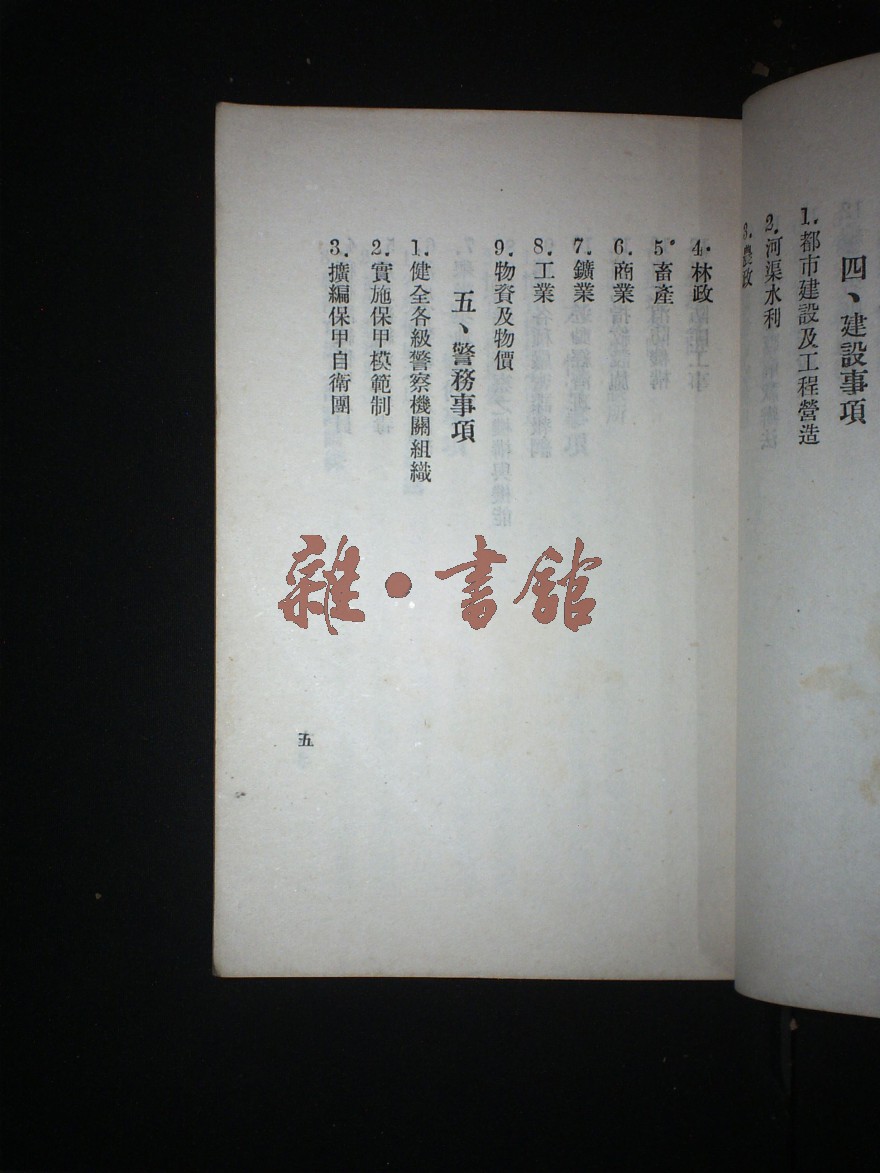 四、建設事項
1.都市建設及工程營造
2.河渠水利
3.農政
4.林政
5.畜產
6.商業
7.鑛業
8.工業
9.物資及物價
五、警務事項
1.健全各級警察機關組織
2.實施保甲模範制
3.擴編保甲自衛團
五
雜·書館